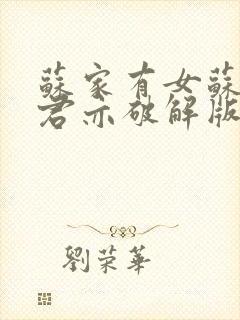 蘇家有女蘇
君亦破解版
劉荣華